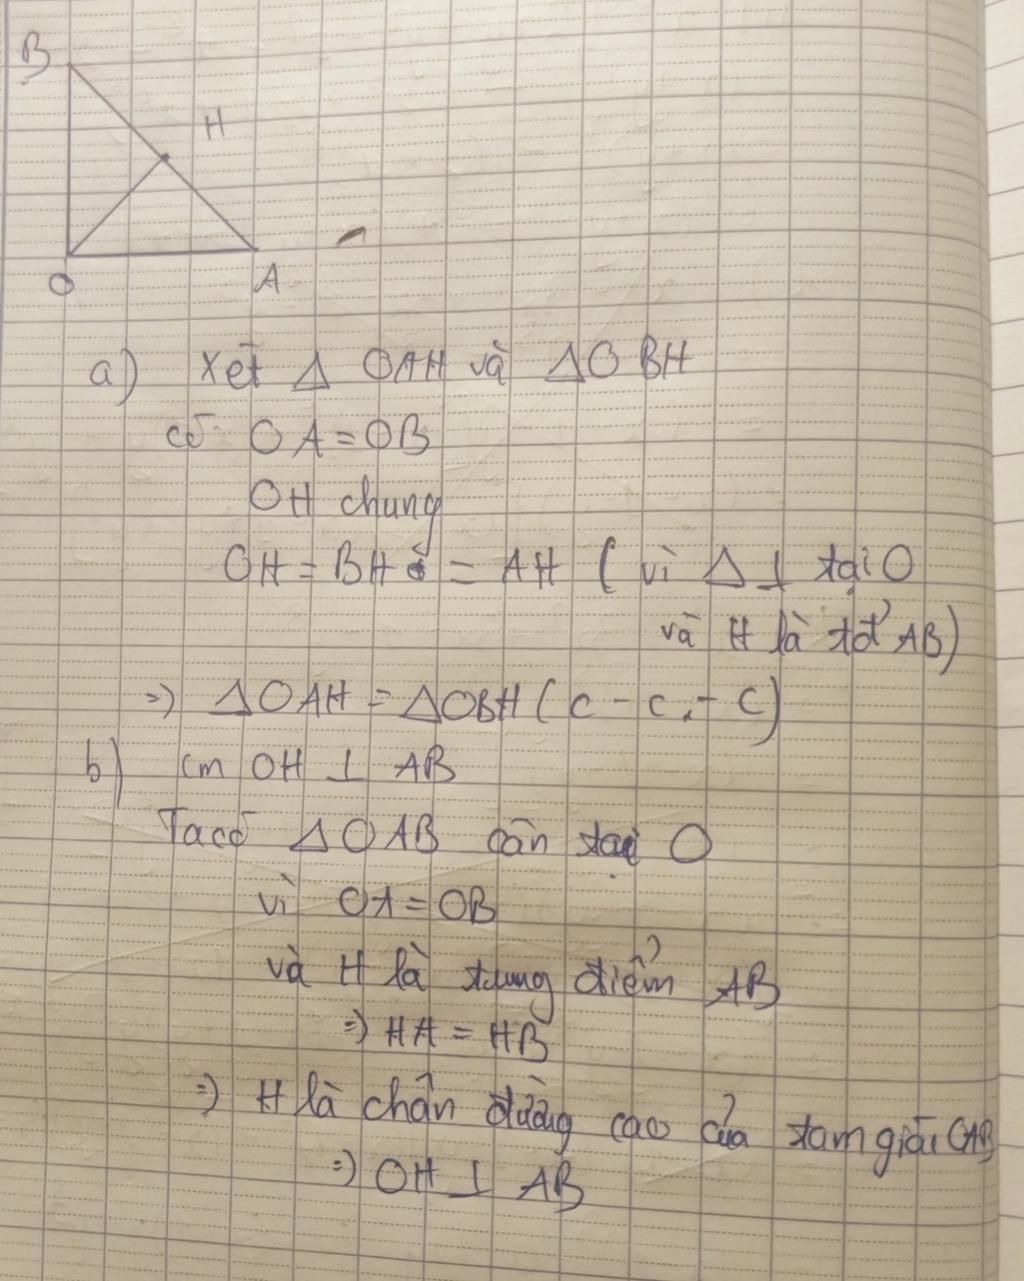 B
H
O
A
a) Xét Δ OAH và ΔOBH
có OA = OB
OH chung
OH = BH = AH ( vì Δ ⊥ tại O
và H là tđ AB)
=) ΔOAH = ΔOBH ( c - c - c)
b) cm OH ⊥ AB
Ta có ΔOAB cân tại O
vì OA = OB
và H là trung điểm AB
=) HA = HB
=) H là chân đường cao của tam giác OAB
=) OH ⊥ AB